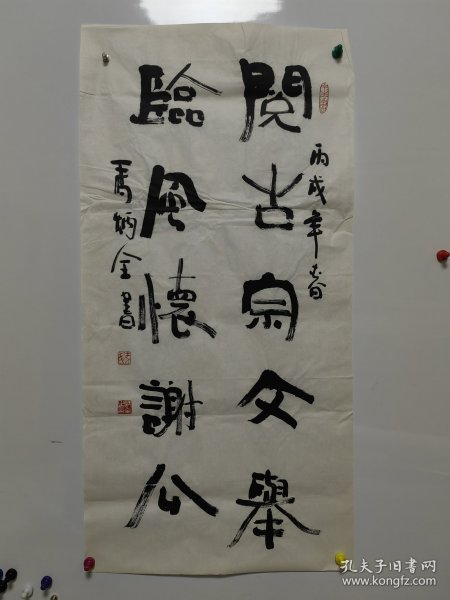 閲古宗文舉
丙戌年春
臨風懷謝公
馬炳全書
孔夫子旧书网
www.kongfz.com